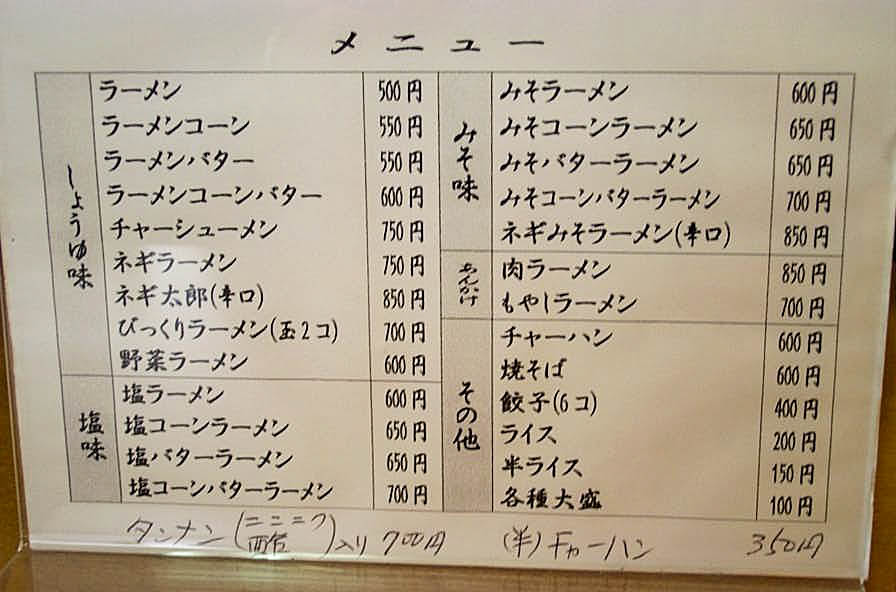 メニュー
しょうゆ味
ラーメン 500円
ラーメンコーン 550円
ラーメンバター 550円
ラーメンコーンバター 600円
チャーシューメン 750円
ネギラーメン 750円
ネギ太郎(辛口) 850円
びっくりラーメン(玉2コ) 700円
野菜ラーメン 600円
塩味
塩ラーメン 600円
塩コーンラーメン 650円
塩バターラーメン 650円
塩コーンバターラーメン 700円
みそ味
みそラーメン 600円
みそコーンラーメン 650円
みそバターラーメン 650円
みそコーンバターラーメン 700円
ネギみそラーメン(辛口) 850円
あんかけ
肉ラーメン 850円
もやしラーメン 700円
その他
チャーハン 600円
焼そば 600円
餃子(6コ) 400円
ライス 200円
半ライス 150円
各種大盛 100円
タンメン(ニンニク 酢)入り 700円
(半)チャーハン 350円